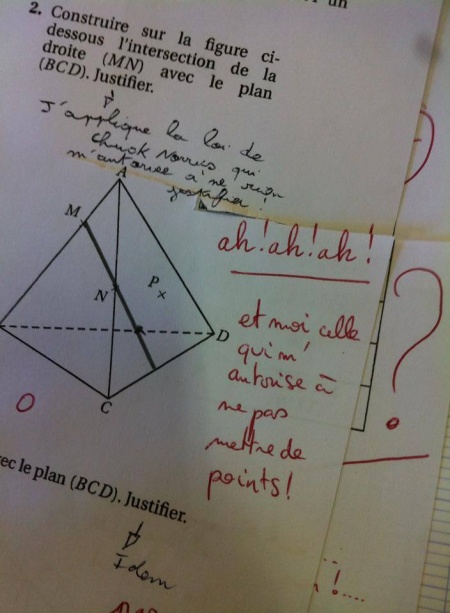 2. Construire sur la figure ci-
dessous l'intersection de la
droite (MN) avec le plan
(BCD). Justifier.
J'applique la loi de
Chuck Norris qui
m'autorise à ne rien
justifier !
A
M
N
P
D
C
ah! ah! ah!
et moi celle
qui m'
autorise à
ne pas
mettre de
points!
?
0
ec le plan (BCD). Justifier.
Idem